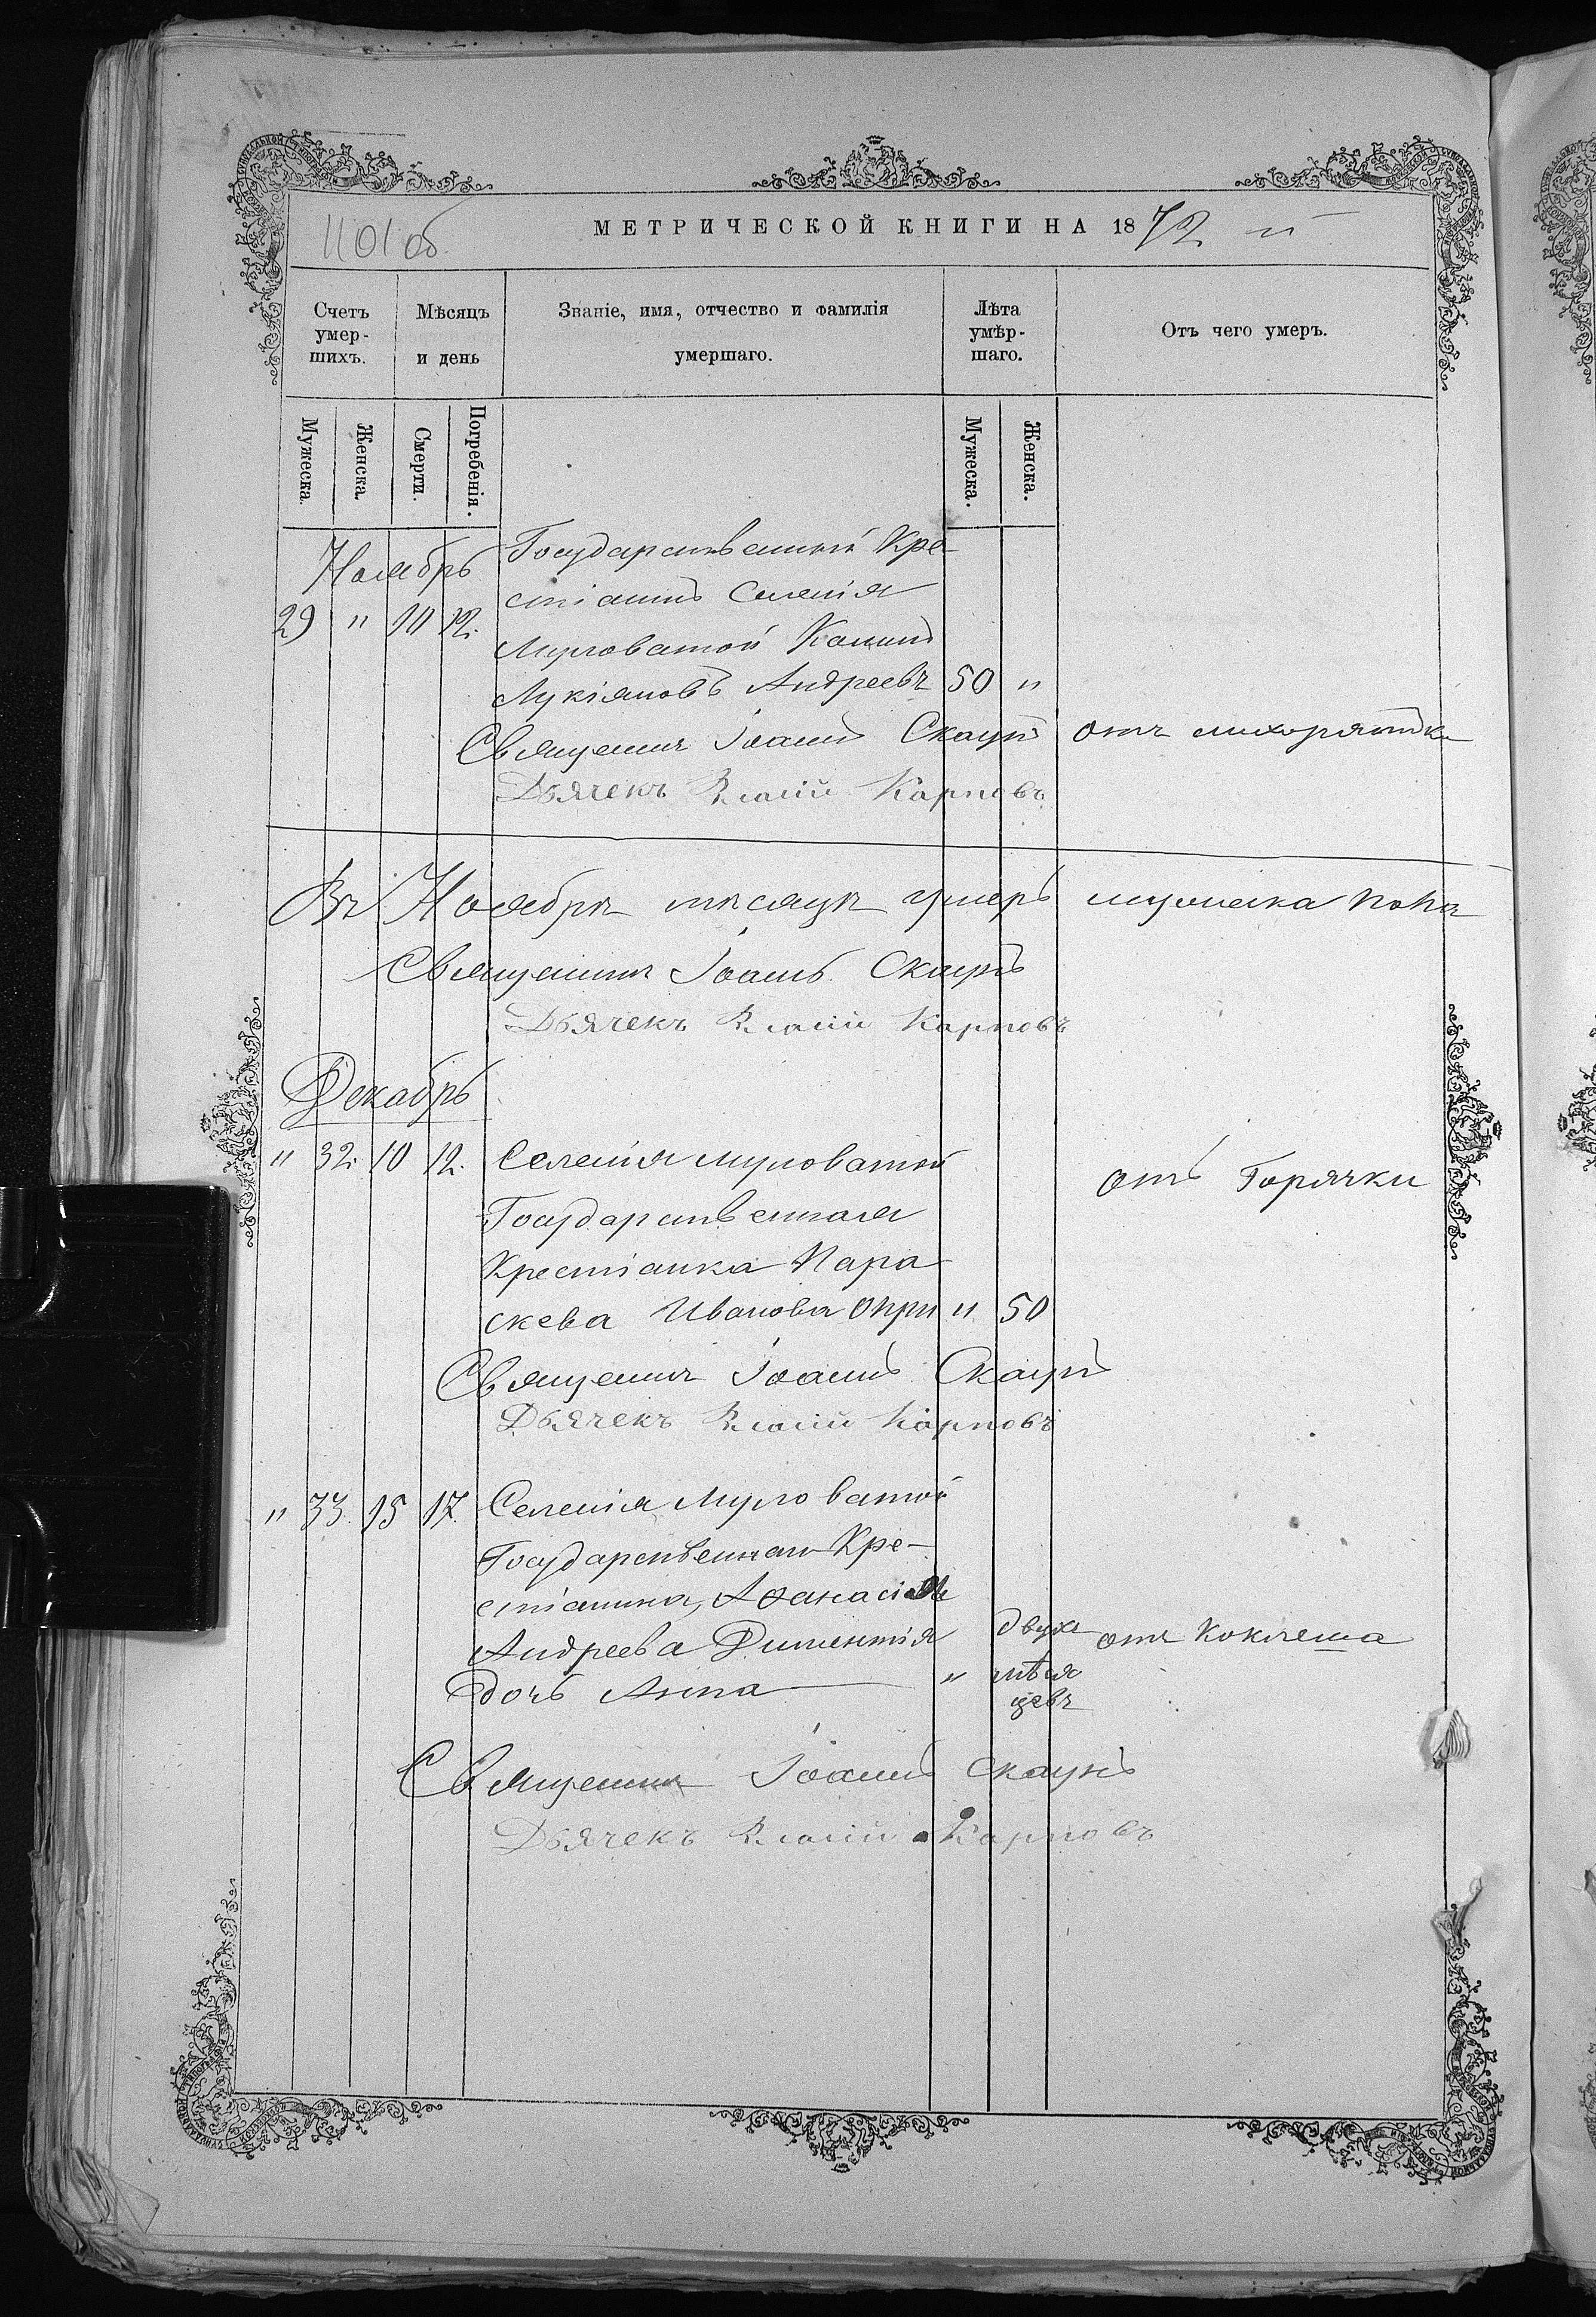 1101об
МЕТРИЧЕСКОЙ КНИГИ НА 1872 й
Счетъ умер-шихъ.
Мѣсяцъ и день
Званіе, имя, отчество и фамилія умершаго.
Лѣта умѣр-шаго.
Отъ чего умеръ.
Мужеска.
Женска.
Смерти.
Погребенія.
Мужеска.
Женска.
Ноябрь
Государственный Кре-
стіанинъ Селенія
29 " 10 12.
Мурованой
Лукіяновъ Андреевъ 50 "
Священникъ Іоаннъ Скаунъ
Дьячекъ Власій Карповъ
Въ Ноябрѣ мѣсяцѣ умеръ мужеска
Священникъ Іоаннъ Скаунъ
Дьячекъ Власій Карповъ
Декабрь
" 32. 10 12. Селенія Мурованой
отъ Горячки
Государственная
Крестіанка Пара
скева Иванова " 50
Священникъ Іоаннъ Скаунъ
Дьячекъ Власій Карповъ
" 33. 15 17. Селенія Мурованой
Государственнаго Кре-
стіанина, Аѳанасія
Андреева Дементія
двухъ
отъ Коклюша
дочь Анна " мѣся
цевъ
Священникъ Іоаннъ Скаунъ
Дьячекъ Власій Карповъ